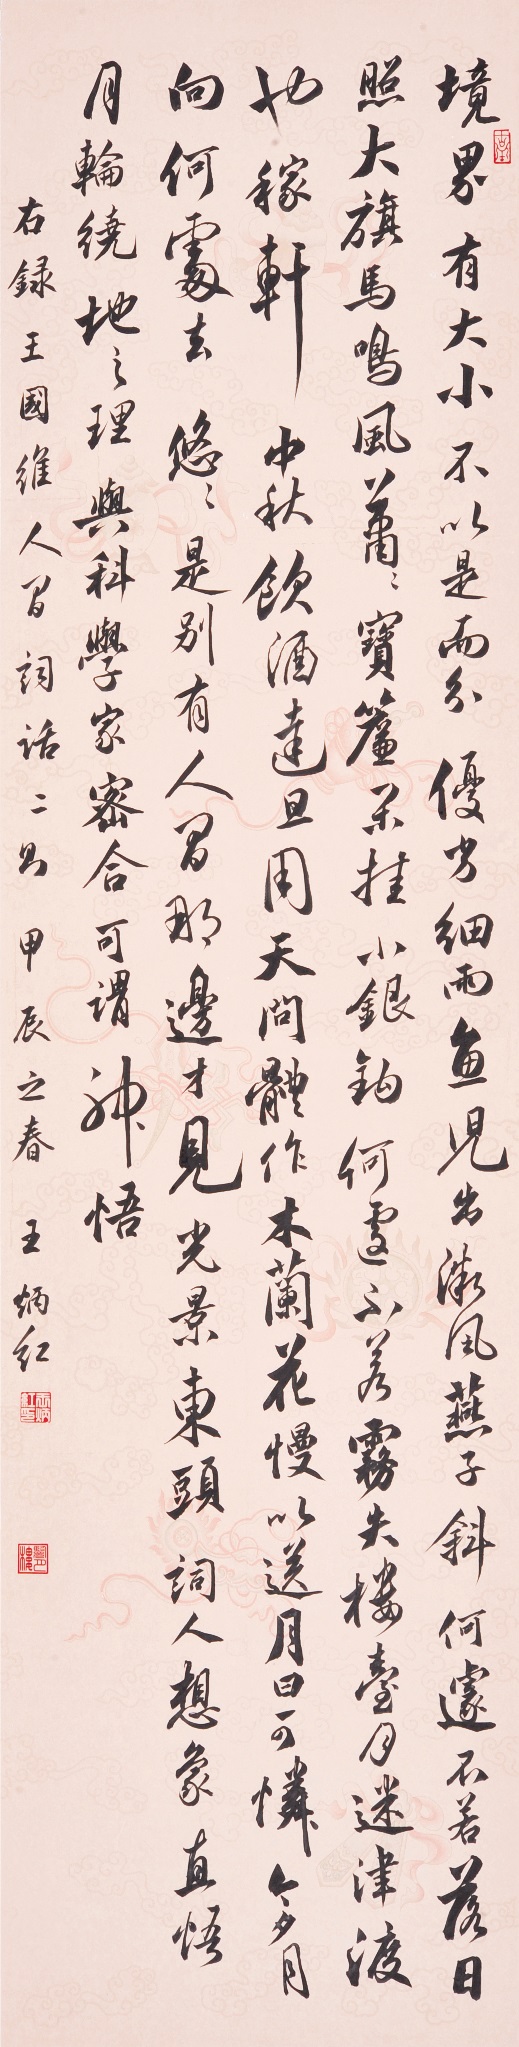 境界有大小不以是而分優劣細雨魚兒出微風燕子斜何遽不若落日
照大旗馬鳴風蕭〻寶簾閒挂小銀鈎何遽不若霧失樓臺月迷津渡
也稼軒中秋飲酒達旦用天問體作木蘭花慢以送月曰可憐今夕月
向何處去悠〻是别有人間那邊才見光景東頭詞人想象直悟
月輪繞地之理與科學家密合可謂神悟
右録王國維人間詞話二則 甲辰之春 王炳红